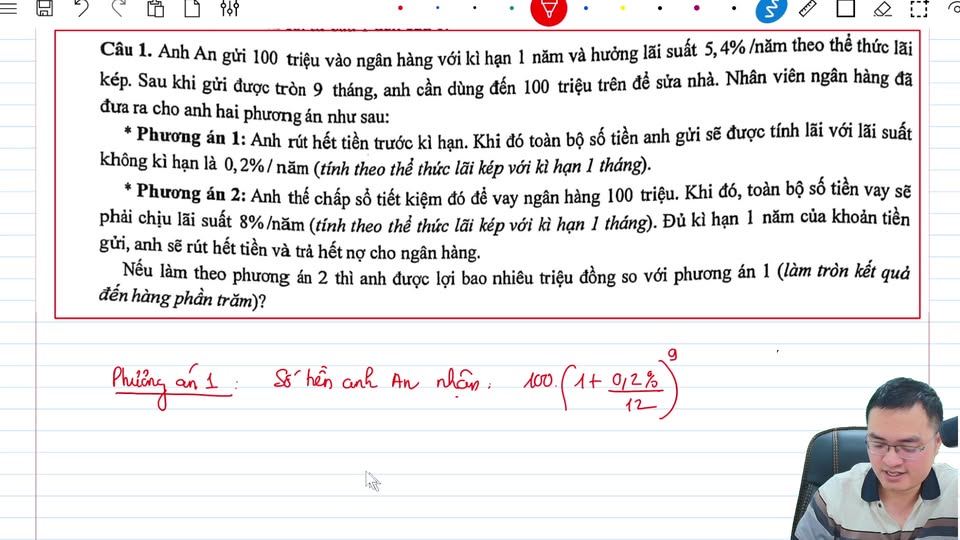 Câu 1. Anh An gửi 100 triệu vào ngân hàng với kì hạn 1 năm và hưởng lãi suất 5,4%/năm theo thể thức lãi
kép. Sau khi gửi được tròn 9 tháng, anh cần dùng đến 100 triệu trên để sửa nhà. Nhân viên ngân hàng đã
đưa ra cho anh hai phương án như sau:
* Phương án 1: Anh rút hết tiền trước kì hạn. Khi đó toàn bộ số tiền anh gửi sẽ được tính lãi với lãi suất
không kì hạn là 0,2%/năm (tính theo thể thức lãi kép với kì hạn 1 tháng).
* Phương án 2: Anh thế chấp sổ tiết kiệm đó để vay ngân hàng 100 triệu. Khi đó, toàn bộ số tiền vay sẽ
phải chịu lãi suất 8%/năm (tính theo thể thức lãi kép với kì hạn 1 tháng). Đủ kì hạn 1 năm của khoản tiền
gửi, anh sẽ rút hết tiền và trả hết nợ cho ngân hàng.
Nếu làm theo phương án 2 thì anh được lợi bao nhiêu triệu đồng so với phương án 1 (làm tròn kết quả
đến hàng phần trăm)?
Phương án 1: Số tiền anh An nhận: 100.(1+ 0,2%/12)^9